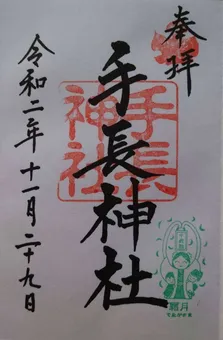 奉拝
手長神社
手長
神社
令和二年十一月二十九日
霜月